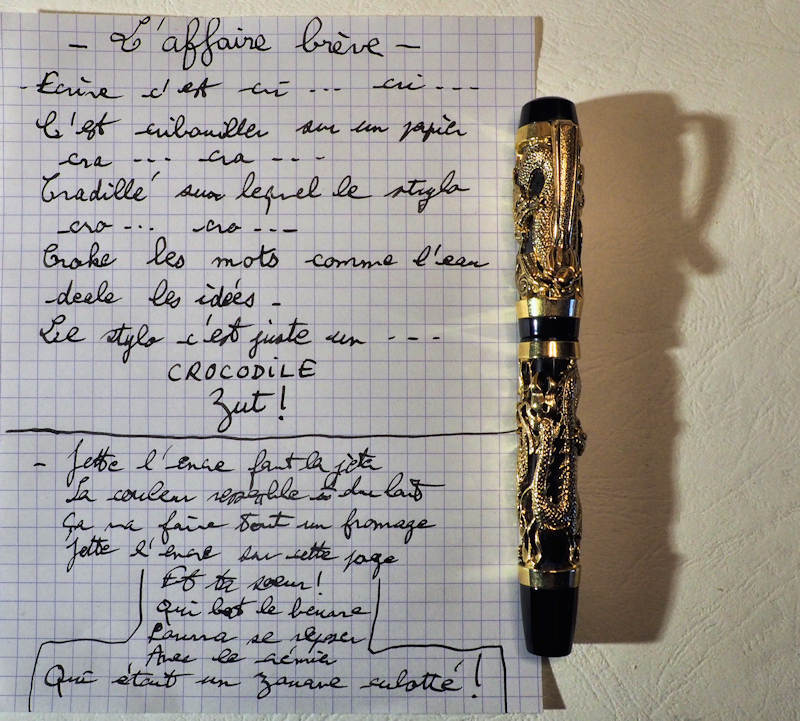 - L'affaire brève -
- Ecrire c'est cri --- cri ---
C'est cribouiller sur un papier
cra --- cra ---
Cradillé sur lequel le stylo
cro --- cro ---
Croke les mots comme l'eau
deale les idées -
Le stylo c'est juste un ---
CROCODILE
Zut !
- Jette l'encre faut la jeter
La couleur ressemble à du lait
Ça va faire tout un fromage
Jette l'encre sur cette page
Et ta soeur !
Qui bat le beurre
Pourra se reposer
Avec le crémier
Qui était un zouave culotté !